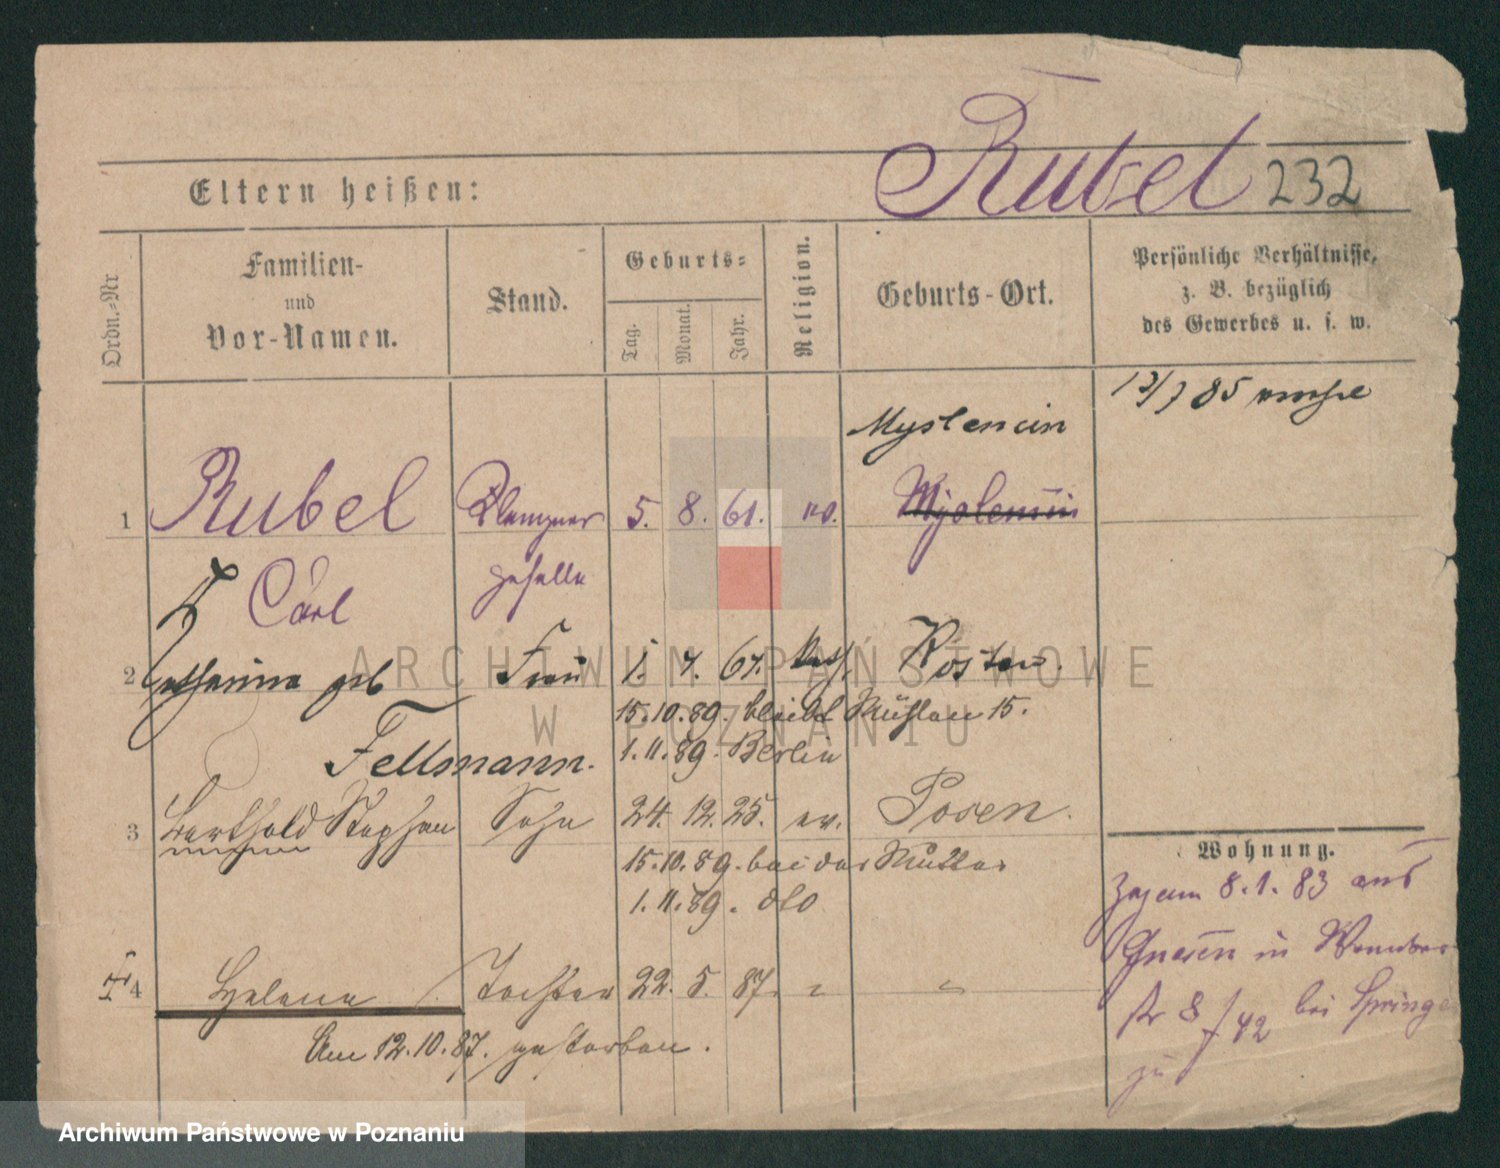 Rubel 232
Eltern heißen:
Ordn.-Nr
Familien-
und
Vor-Namen.
Stand.
Geburts-
Tag.
Monat.
Jahr.
Religion.
Geburts-Ort.
Persönliche Verhältnisse,
z. B. bezüglich
des Gewerbes u. s. w.
85
Myslencin
1 Rubel Klempner 5. 8. 61. ev.
Carl geselle
2 Catharina geb Frau 1. 7. 67. kath. Kosten.
15.10.89. bleibt Mühlen 15.
Fellmann. 1.11.89. Berlin
3 Berthold Stephan Sohn 24. 12. 25. ev. Posen.
15.10.89. bei der Mutter
1.11.89. dto
4 Helene Tochter 22. 5. 87. " "
Am 12.10.87. gestorben.
Wohnung.
8.1.83 aus
Gnesen in
str 8 bei Springer
zu 42
ARCHIWUM PAŃSTWOWE
W POZNANIU
Archiwum Państwowe w Poznaniu